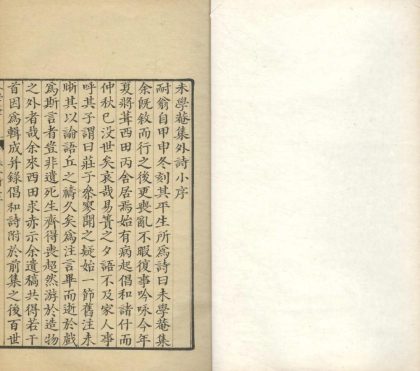 未學菴集外詩小序
耐翁自甲申冬刻其平生所爲詩曰未學菴集
余既敘而行之後更喪亂不暇復事吟咏今年
夏將葺西田丙舍居焉始有病起倡和諸什而
仲秋已没世矣哀哉易簀之夕語不及家人事
呼其子謂曰莊子衆寥聞之疑始一節舊注未
晰其以論語丘之禱久矣爲注言畢而逝於戲
爲斯言者豈非遺死生齊得喪超然游於造物
之外者哉余來西田求赤示余遺稿共得若干
首因爲輯成并錄倡和詩附於前集之後百世